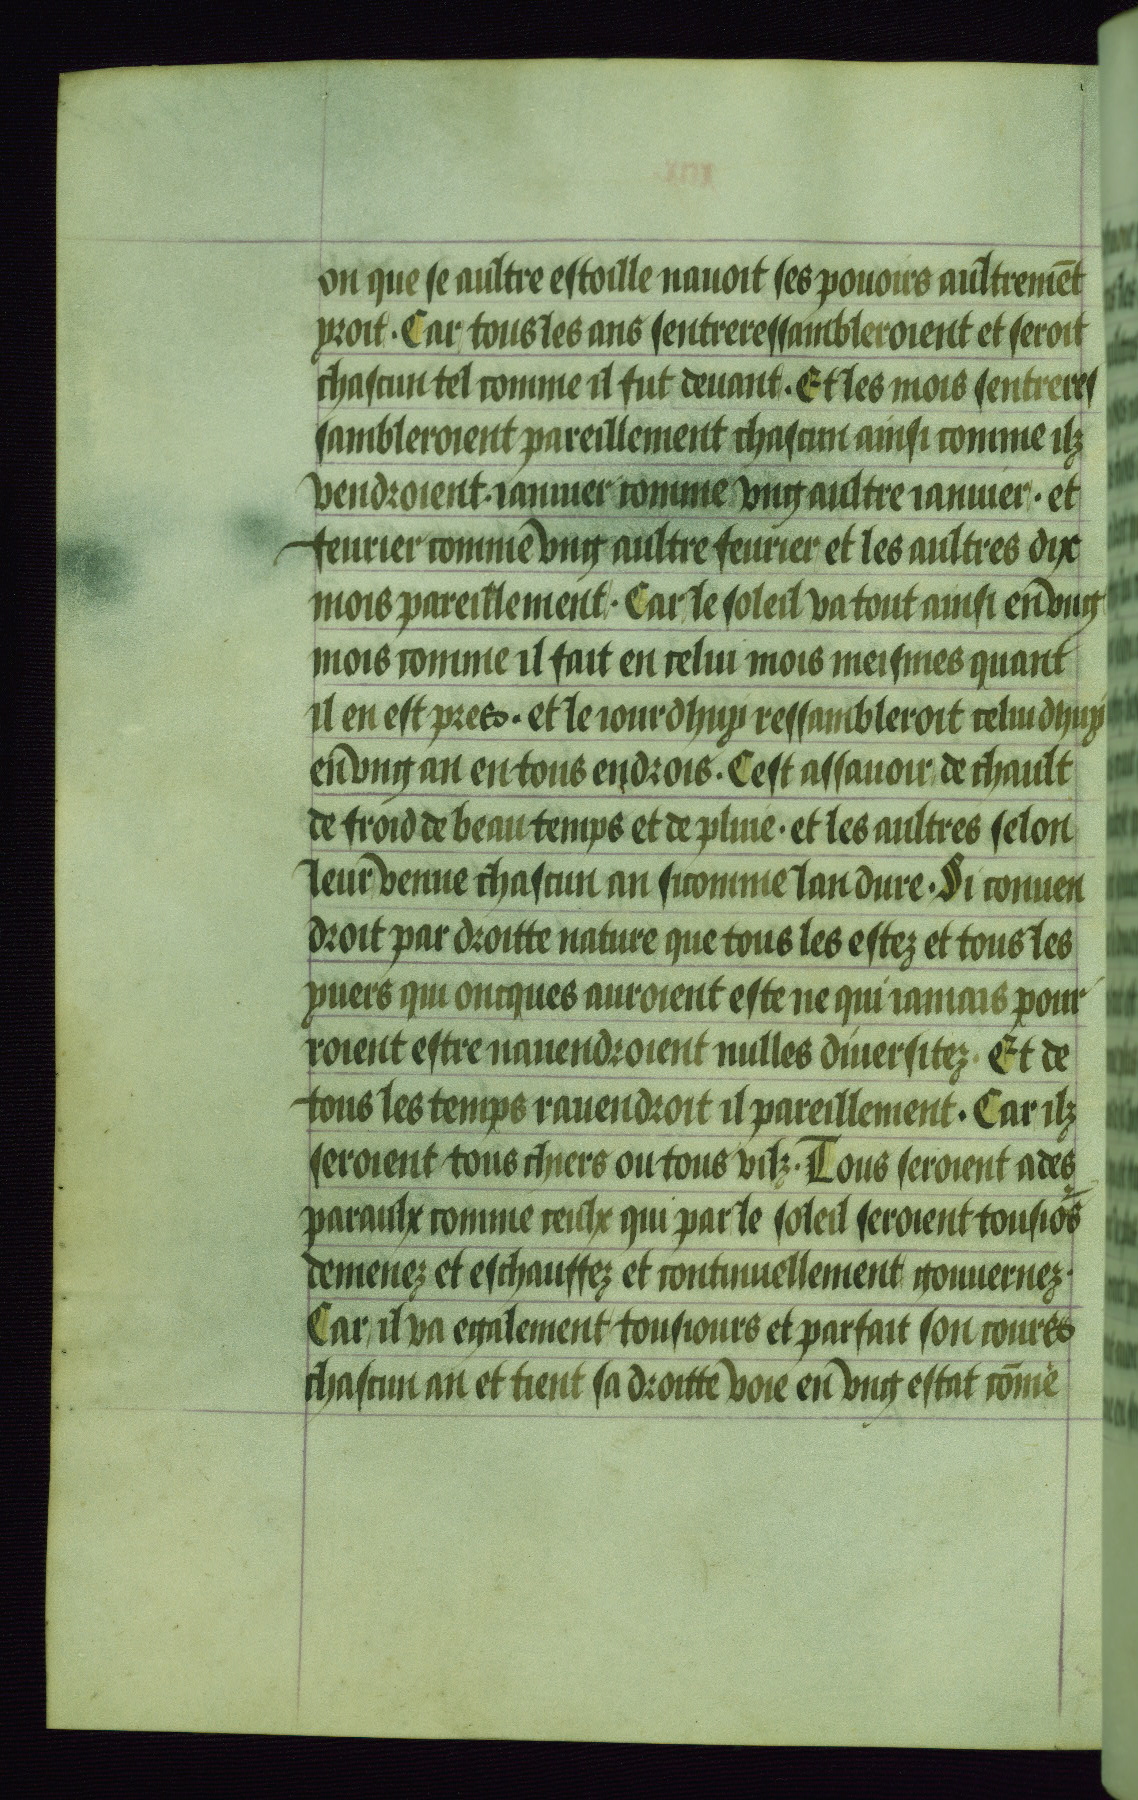 on que se aultre estoille nauoit ses pouoirs aultremēt
yroit. Car tous les ans sentreressambleroient et seroit
chascun tel comme il fut deuant. Et les mois sentreres
sambleroient pareillement chascun ainsi comme ilz
vendroient. ianuier comme vng aultre ianuier. et
feurier comme vng aultre feurier et les aultres dix
mois pareillement. Car le soleil va tout ainsi en vng
mois comme il fait en celui mois meismes quant
il en est pres. et le iour dhuy ressambleroit celui dhuy
en vng an en tous endrois. Cest assauoir de chault
de froid de beau temps et de pluie. et les aultres selon
leur venue chascun an sicomme lan dure. Si conuen
droit par droitte nature que tous les estez et tous les
yuers qui oncques auroient este ne qui iamais pour
roient estre nauendroient nulles diuersitez. Et de
tous les temps rauendroit il pareillement. Car ilz
seroient tous chiers ou tous vilz. Tous seroient ades
paraulx comme ceulx qui par le soleil seroient tousiors
demenez et eschauffez et continuellement gouuernez.
Car il va egalement tousiours et parfait son cours
chascun an et tient sa droitte voie en vng estat cōme